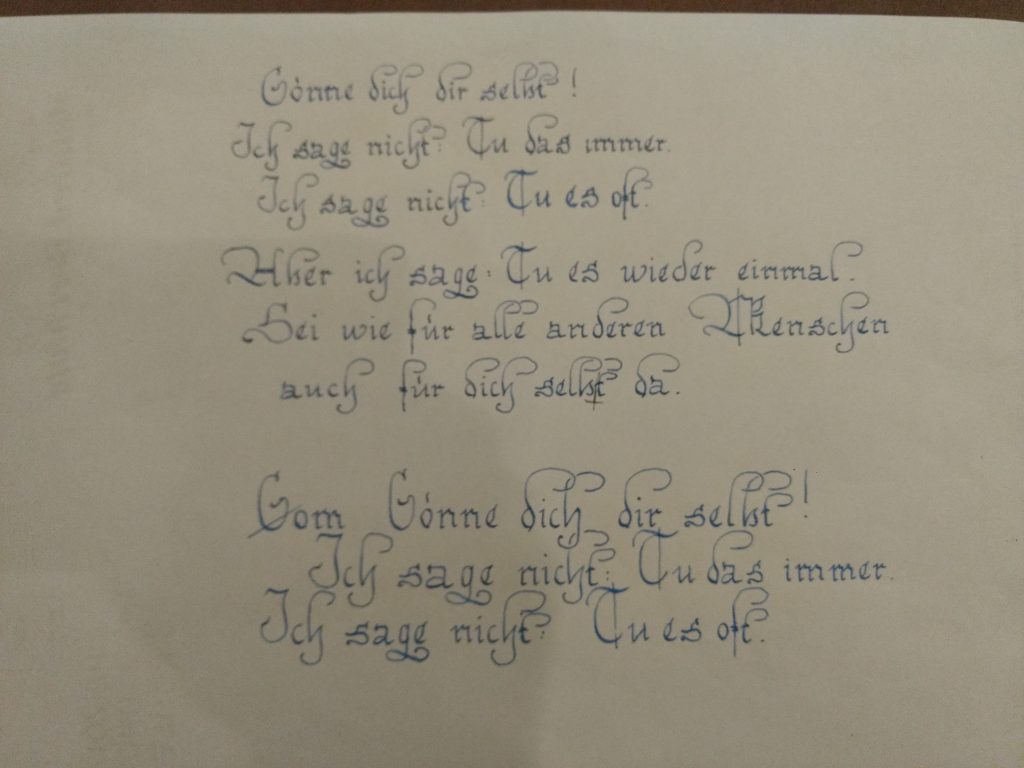 Gönne dich dir selbst!
Ich sage nicht: Tu das immer.
Ich sage nicht: Tu es oft.
Aber ich sage: Tu es wieder einmal.
Sei wie für alle anderen Menschen
auch für dich selbst da.
Gom Gönne dich dir selbst!
Ich sage nicht: Tu das immer.
Ich sage nicht: Tu es oft.